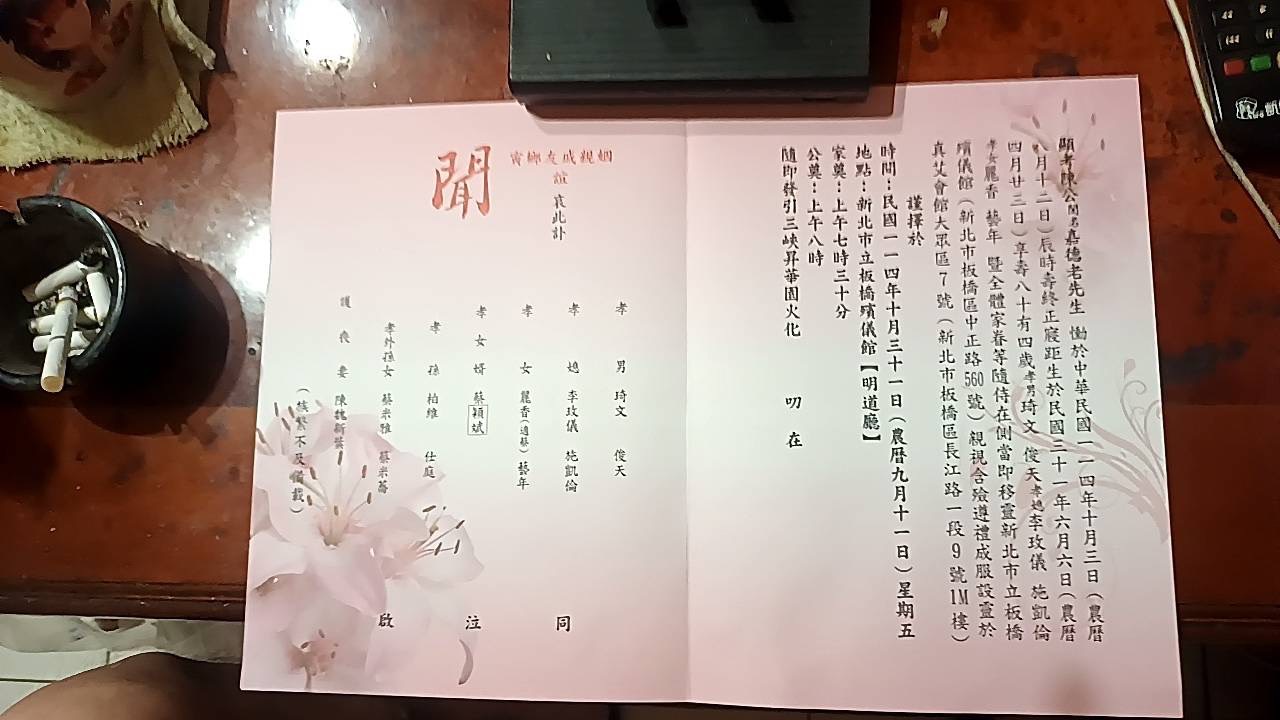 顯考陳公閩名嘉德老先生 慟於中華民國一一四年十月三日(農曆
八月十二日)辰時壽終正寢距生於民國三十一年六月六日(農曆
四月廿三日)享壽八十有四歲孝男琦文 俊天孝媳李玫儀 施凱倫
孝女麗香 藝年 暨全體家眷等隨侍在側當即移靈新北市立板橋
殯儀館(新北市板橋區中正路560號)親視含殮遵禮成服設靈於
真艾會館大眾區7號(新北市板橋區長江路一段9號1M樓)
謹擇於
時間:民國一一四年十月三十一日(農曆九月十一日)星期五
地點:新北市立板橋殯儀館【明道廳】
家奠:上午七時三十分
公奠:上午八時
隨即發引三峽昇華園火化
叨在
姻親戚友鄉
誼 哀此訃
聞
孝男 琦文 俊天
孝媳 李玫儀 施凱倫
孝女 麗香(適蔡) 藝年
孝女婿 蔡穎斌
孝孫 柏維 仕庭
孝外孫女 蔡米雅 蔡米
護喪妻 陳魏新
(族繁不及備載)
同
泣
啟